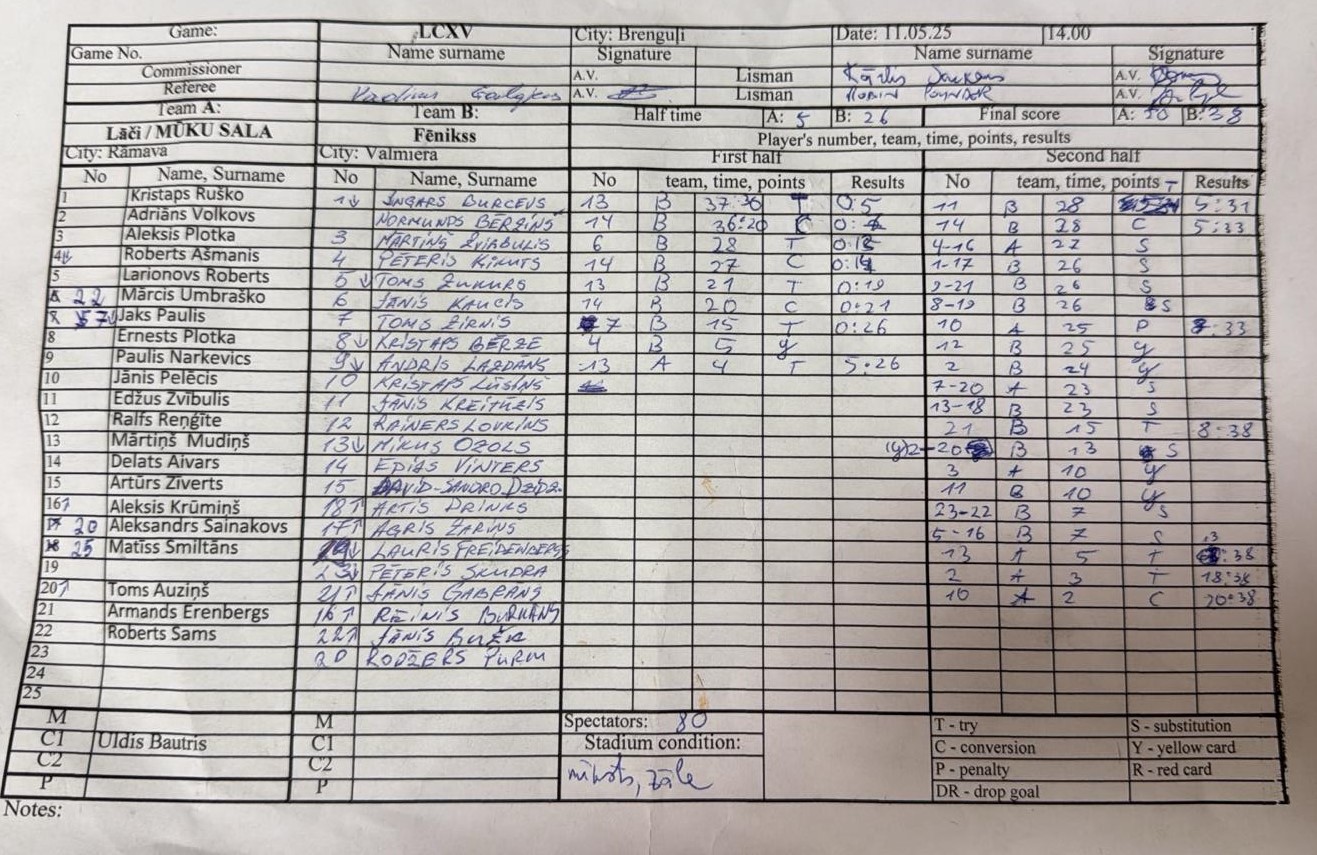 Game: LCXV City: Brenguļi Date: 11.05.25 14.00
Game No. Name surname Signature Name surname Signature
Commissioner A.V. Lisman Kārlis A.V.
Referee Vadims A.V. Lisman ROBIN POYNDER A.V.
Team A: Team B: Half time A: 5 B: 26 Final score A: 20 B: 38
Lāči / MŪKU SALA Fēnikss Player's number, team, time, points, results
City: Rāmava City: Valmiera First half Second half
No Name, Surname No Name, Surname No team, time, points Results No team, time, points Results
1 Kristaps Ruško 1↓ INGARS BURCEVS 13 B 37:36 T 0:5 11 B 28 T 5:31
2 Adriāns Volkovs NORMUNDS BĒRZIŅŠ 14 B 36:20 C 14 B 28 C 5:33
3 Aleksis Plotka 3 MĀRTIŅŠ ZVIRBULIS 6 B 28 T 4-16 A 27 S
4↓ Roberts Ašmanis 4 PĒTERIS ĶIKUTS 14 B 27 C 0:14 1-17 B 26 S
5 Larionovs Roberts 5↓ TOMS ZUKURS 13 B 21 T 0:19 9-21 B 26 S
22 Mārcis Umbraško 6 JĀNIS KAUCIS 14 B 20 C 0:21 8-19 B 26 S
57↓ Jaks Paulis 7 TOMS ZIRNIS 7 B 15 T 0:26 10 A 25 P 8:33
8 Ernests Plotka 8↓ KRISTAPS BĒRZE 4 B 5 Y 12 B 25 Y
9 Paulis Narkevics 9↓ ANDRIS LAZDĀNS 13 A 4 T 5:26 2 B 24 Y
10 Jānis Pelēcis 10 KRISTAPS LŪSIŅŠ 7-20 A 23 S
11 Edžus Zvībulis 11 JĀNIS KREITŪZIS 13-18 B 23 S
12 Ralfs Reņģīte 12 RAINERS LOVKINS 21 B 15 T 8:38
13 Mārtiņš Mudiņš 13↓ MIKUS OZOLS (y)2-20 B 13 S
14 Delats Aivars 14 VINTERS 3 A 10 Y
15 Artūrs Ziverts 15 DAVID-SANDRO 11 B 10 Y
16↑ Aleksis Krūmiņš 18↑ ARTIS 23-22 B 7 S
20 Aleksandrs Sainakovs 17↑ AGRIS ZARIŅŠ 5-16 B 7 S
25 Matīss Smiltāns LAURIS FREIDENBERGS 13 A 5 T 13:38
19 23↓ PĒTERIS SKUDRA 2 A 3 T 18:38
20↑ Toms Auziņš 21↑ JĀNIS GABRĀNS 10 A 2 C 20:38
21 Armands Erenbergs 16↑ REINIS BURKĀNS
22 Roberts Sams 22↑ JĀNIS
23 20 RODŽERS PURM
24
25
M M Spectators: 80 T - try S - substitution
C1 Uldis Bautris C1 Stadium condition: C - conversion Y - yellow card
C2 C2 mīksts, zāle P - penalty R - red card
P P DR - drop goal
Notes: